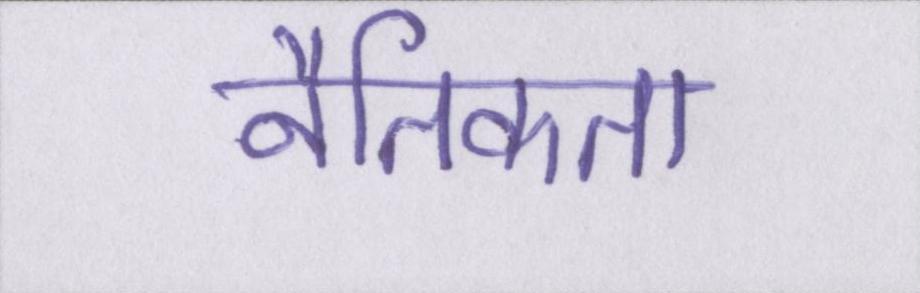 नैतिकता